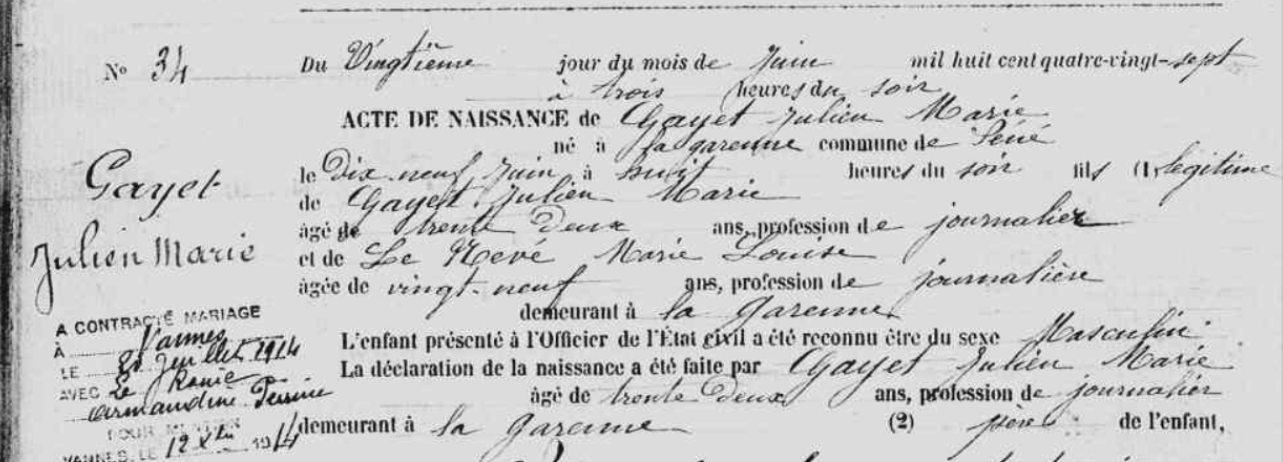 No 34
Du Vingtième jour du mois de Juin mil huit cent quatre-vingt-sept
à trois heures du soir
ACTE DE NAISSANCE de Gayet Julien Marie
né à la garenne commune de Séné
le Dix neuf Juin à huit heures du soir fils (1) légitime
de Gayet Julien Marie
âgé de trente Deux ans, profession de journalier
et de Le Nevé Marie Louise
âgée de vingt-neuf ans, profession de journalière
demeurant à la garenne
L'enfant présenté à l'Officier de l'État civil a été reconnu être du sexe Masculin
La déclaration de la naissance a été faite par Gayet Julien Marie
âgé de trente Deux ans, profession de journalier
demeurant à la garenne (2) père de l'enfant,
Gayet
Julien Marie
A CONTRACTÉ MARIAGE
À Vannes
LE Juillet 1914
AVEC Le
Armandine Perrine
POUR MENTION
VANNES, LE 12 Xbre 1914